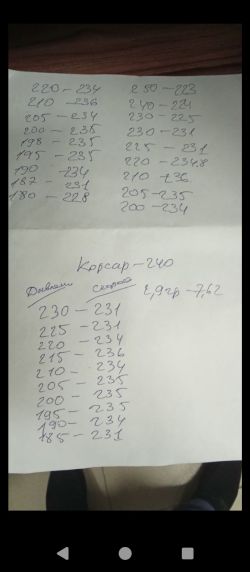 220 – 234
210 – 236
205 – 234
200 – 235
198 – 235
195 – 235
190 – 234
187 – 231
180 – 228
250 – 223
240 – 224
230 – 225
230 – 231
225 – 231
220 – 234.8
210 – 236
205 – 235
200 – 234
Корсар – 240
Давлени скорос 2,9гр – 7,62
230 – 231
225 – 231
220 – 234
215 – 236
210 – 234
205 – 235
200 – 235
195 – 235
190 – 234
185 – 231